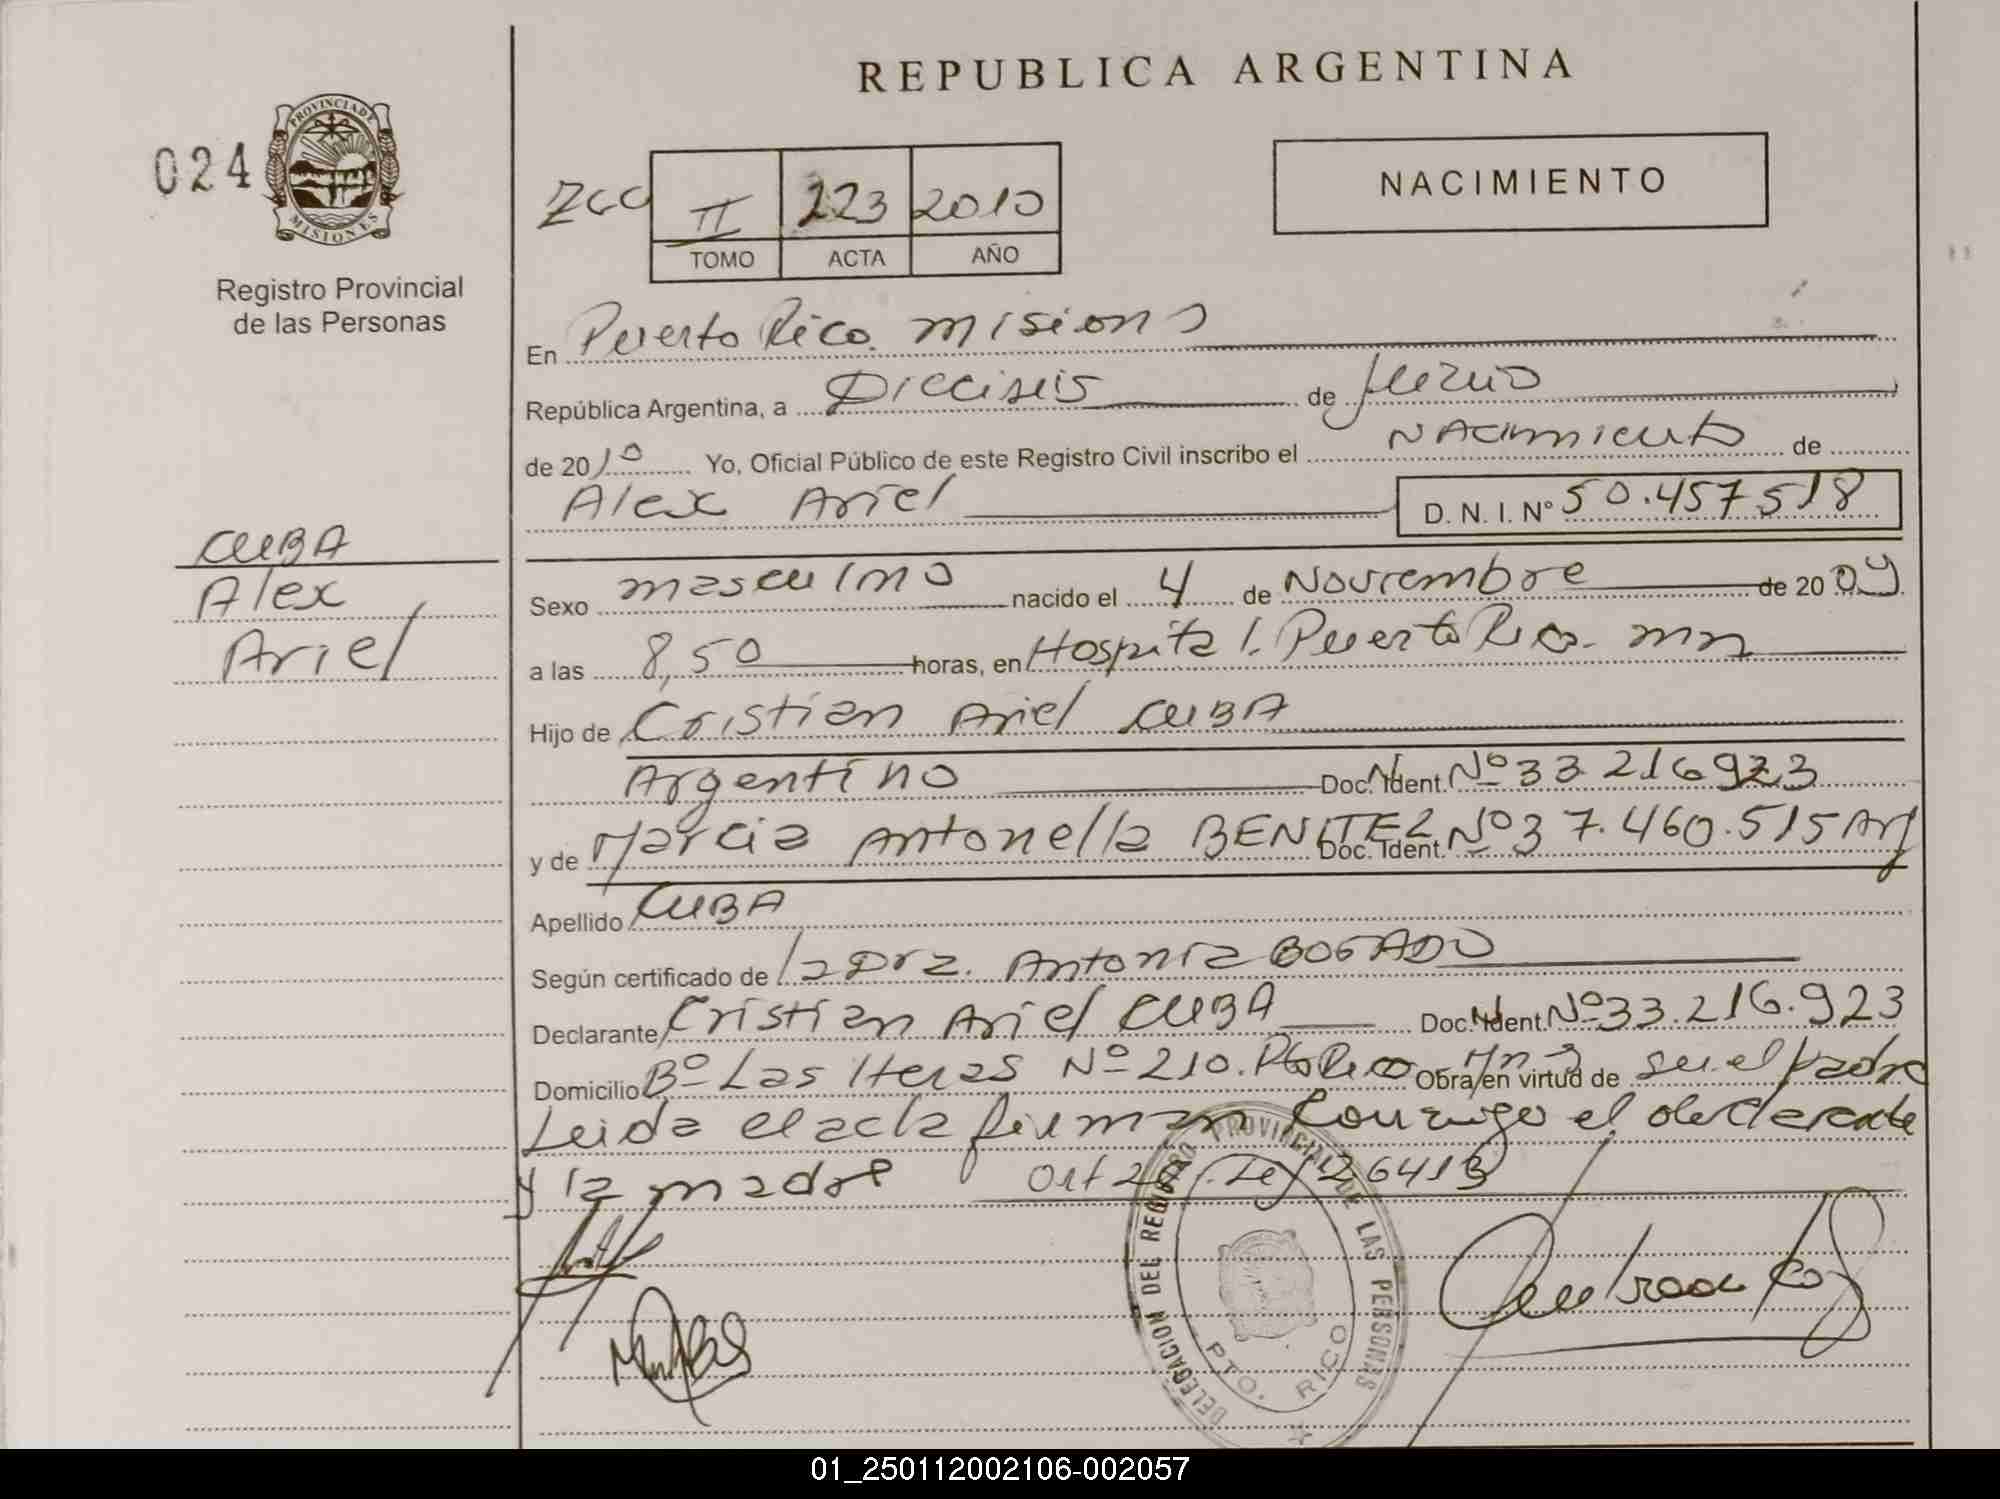 REPUBLICA ARGENTINA
024
PROVINCIA DE MISIONES
Registro Provincial
de las Personas
NACIMIENTO
II 223 2010
TOMO ACTA AÑO
En Puerto Rico. Misions
República Argentina, a Dieciseis de Junio
de 2010 Yo, Oficial Público de este Registro Civil inscribo el Nacimiento de
Alex Ariel D. N. I. N° 50.457.518
CUBA
Alex
Ariel
Sexo masculino nacido el 4 de Noviembre de 2009
a las 8,50 horas, en Hospital. Puerto Rico. Mns
Hijo de Cristian Ariel CUBA
Argentino Doc. Ident. Nº 33 216923
y de Marcia Antonella BENITEZ Doc. Ident. Nº 37.460.515 Arg
Apellido CUBA
Según certificado de la Dra. Antonia BOGADO
Declarante Cristian Ariel CUBA Doc. Ident. Nº 33.216.923
Domicilio Bº Las Heras Nº 210. Pto Rico Mns Obra en virtud de ser el padre
Leida el acta firman conmigo el declarante
y la madre Art 2º. Ley 26413
DELEGACION DEL REGISTRO PROVINCIAL DE LAS PERSONAS
PTO. RICO
01_250112002106-002057